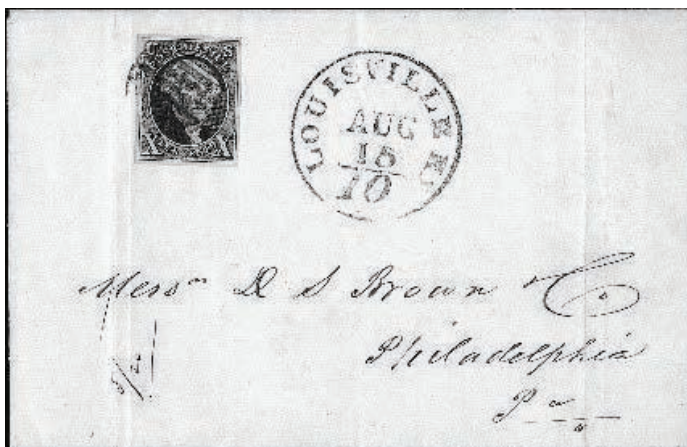 X X
LOUISVILLE K.
AUG
15
10
Messrs D S Brown & Co
Philadelphia
Pa